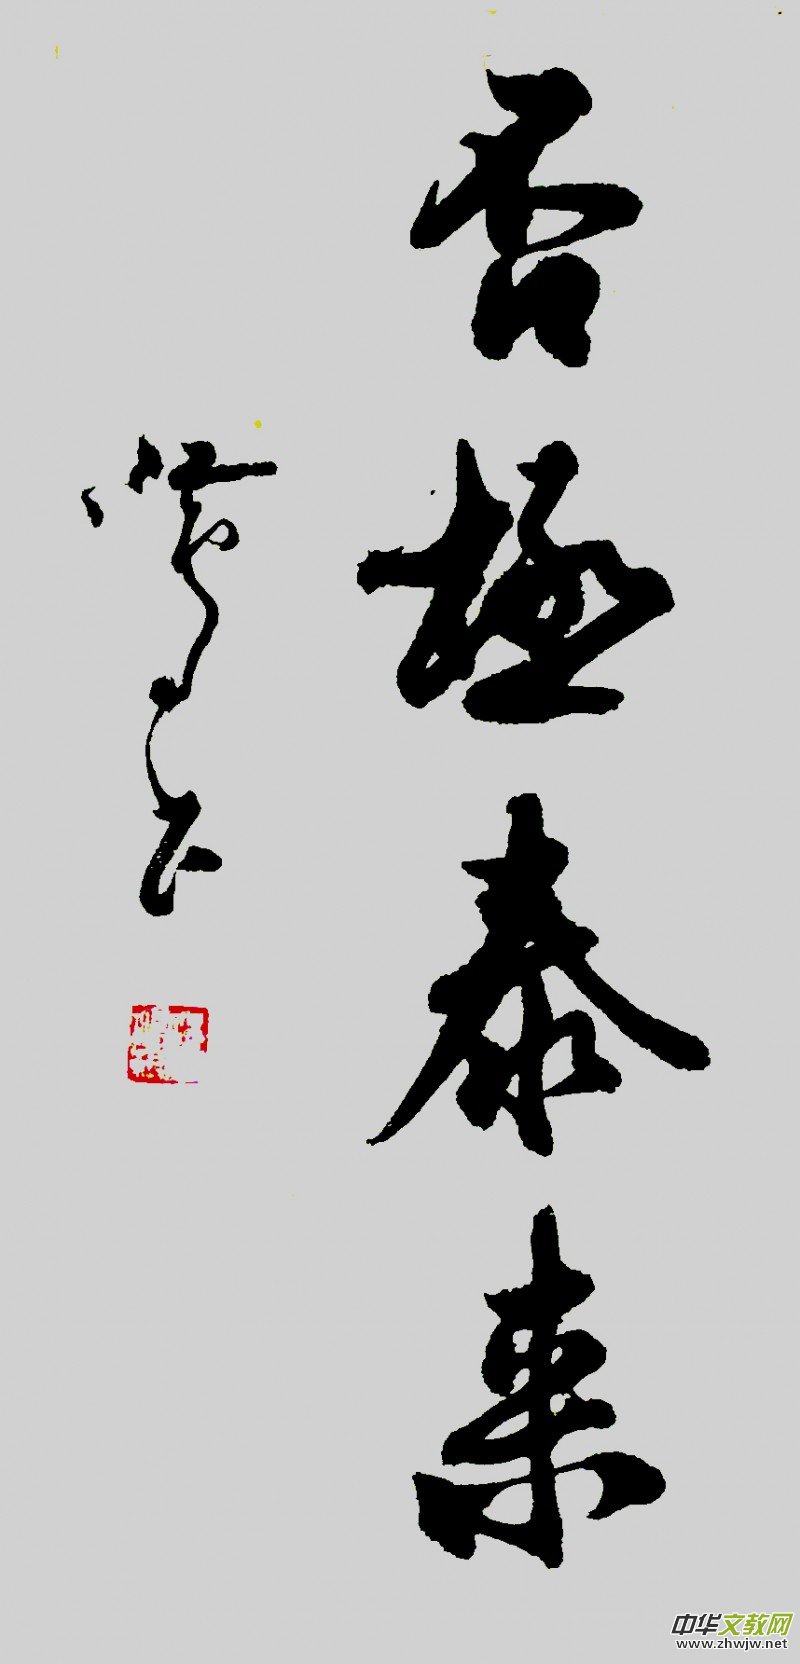 否极泰来
中华文教网
www.zhwjw.net